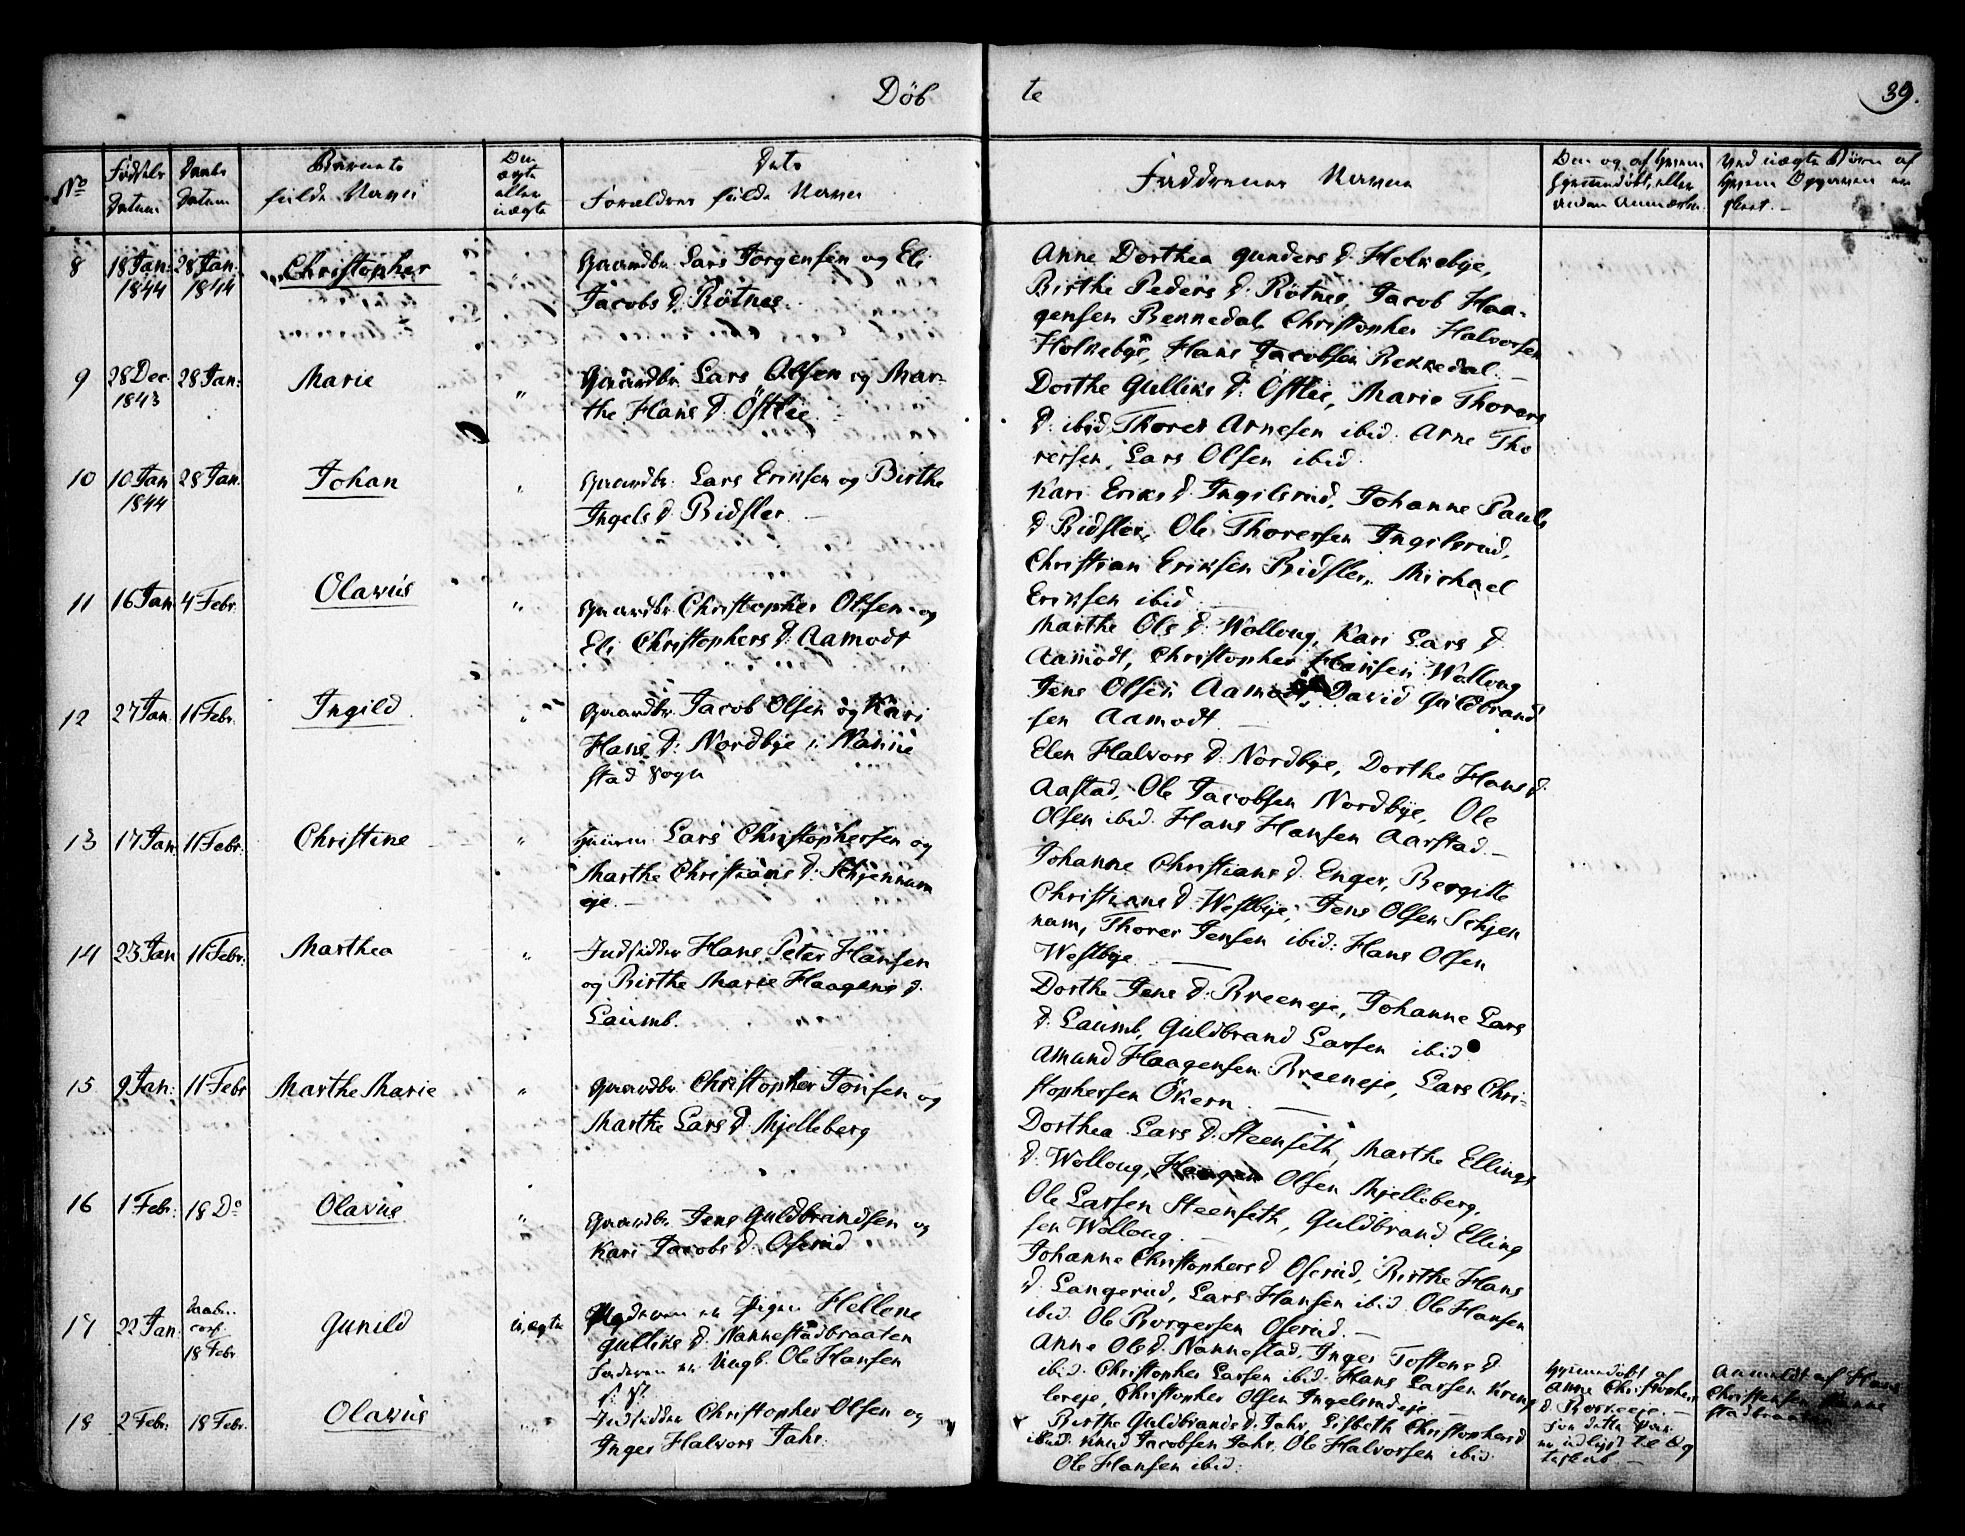 Döbte
39.
No
Fødsels Datum
Daabs Datum
Barnets fulde Navn
Den ægte eller uægte
Dets Forældres fulde Navn
Faddernes Navne
Den og af hvem hjemmedøbt, eller
Ved uægte Børn af hvem Opgaven er skeet.
8 18 Jan: 1844 28 Jan. 1844 Christopher "
Gaardbr. Lars Jorgensen og Eli
Jacobs D. Rötnes.
Anne Dorthea Gunders D. Holkebye,
Birthe Peders D. Rötnes, Jacob Haa-
gensen Bekkedal, Christopher Halvorsen
Holkebye, Hans Jacobsen Bekkedal.
9 28 Dec. 1843 28 Jan: Marie "
Gaardbr. Lars Olsen og Mar-
the Hans D. Östlie
Dorthe Gulliks D. Östlie, Marie Thores
D. ibid, Thorer Arnesen ibid. Arne Tho
rersen, Lars Olsen ibid.
10 10 Jan 1844 28 Jan. Johan "
Gaardbr: Lars Eriksen og Birthe
Ingels D. Bidsler
Kari Eriks D. Ingilsrud, Johanne Pauls
D. Bidsler, Ole Thoresen Ingilsrud,
Christian Eriksen Bidsler, Michael
Eriksen ibid
11 16 Jan 4 Febr. Olavus "
Gaardbr. Christopher Olsen og
Eli Christophers D. Aamodt
Marthe Ols D. Wolloug, Kari Lars D.
Aamodt, Christopher Hansen Wolloug
Jens Olsen Aamodt, David Guldbrand
sen Aamodt
12 27 Jan. 11 Febr. Ingild "
Gaardbr. Jacob Olsen og Kari
Hans D: Nordbye i Nanne
stad Sogn
Elen Halvors D. Nordbye, Dorthe Hans D.
Aastad, Ole Jacobsen Nordbye, Ole
Olsen ibid. Hans Hansen Aarstad
13 17 Jan. 11 Febr. Christine "
Lars Christophersen og
Marthe Christians D: Schjennum
eje.
Johanne Christians D. Enger, Bergitte
Christians D. Westbye, Jens Olsen Schjen
num, Thorer Jensen ibid: Hans Olsen
Westbye
14 23 Jan 11 Febr. Marthea "
Indsidder Hans Peter Hansen
og Birthe Marie Haagens D.
Laumb.
Dorthe Jens D. Breeneje, Johanne Lars
D. Laumb, Guldbrand Larsen ibid
Amund Haagensen Breeneje, Lars Chri-
stophersen Ökern
15 9 Jan: 11 Febr Marthe Marie "
Gaardbr. Christopher Jonsen og
Marthe Lars D. Mjelleberg
Dorthea Lars D. Steenseth, Marthe Ellings
D. Wolloug, Haagen Olsen Mjelleberg,
Ole Larsen Steenseth, Guldbrand Elling
sen Wolloug.
16 1 Febr: 18 Do Olavus "
Gaardbr. Jens Guldbrandsen og
Kari Jacobs D. Oserud
Johanne Christophers D Oserud, Birthe Hans
D. Langerud, Lars Hansen ibid. Ole Hansen
ibid. Ole Borgersen Oserud.
17 22 Jan: Daabs. conf. 18 Febr Gunild uægte
Moderen er Pigen Hellene
Gulliks D. Nannestadbraaten
Faderen er Ungk. Ole Hansen
Anne Ols D. Nannestad, Inger Tostens D
ibid. Christopher Larsen ibid. Hans Larsen
Christopher Olsen Ingelsrudeje
Hjemmedøbt af
Anne Christophers
D.
Anmeldt af Hans
Christensen Nanne
stadbraaten
18 2 Febr. 18 Febr. Olavus "
Indsidder Christopher Olsen og
Inger Halvors Jahr.
Berthe Guldbrands D. Jahr, Lisbeth Christophers D
ibid. Knud Jacobsen Jahr. Ole Halvorsen ibid
Ole Hansen ibid.